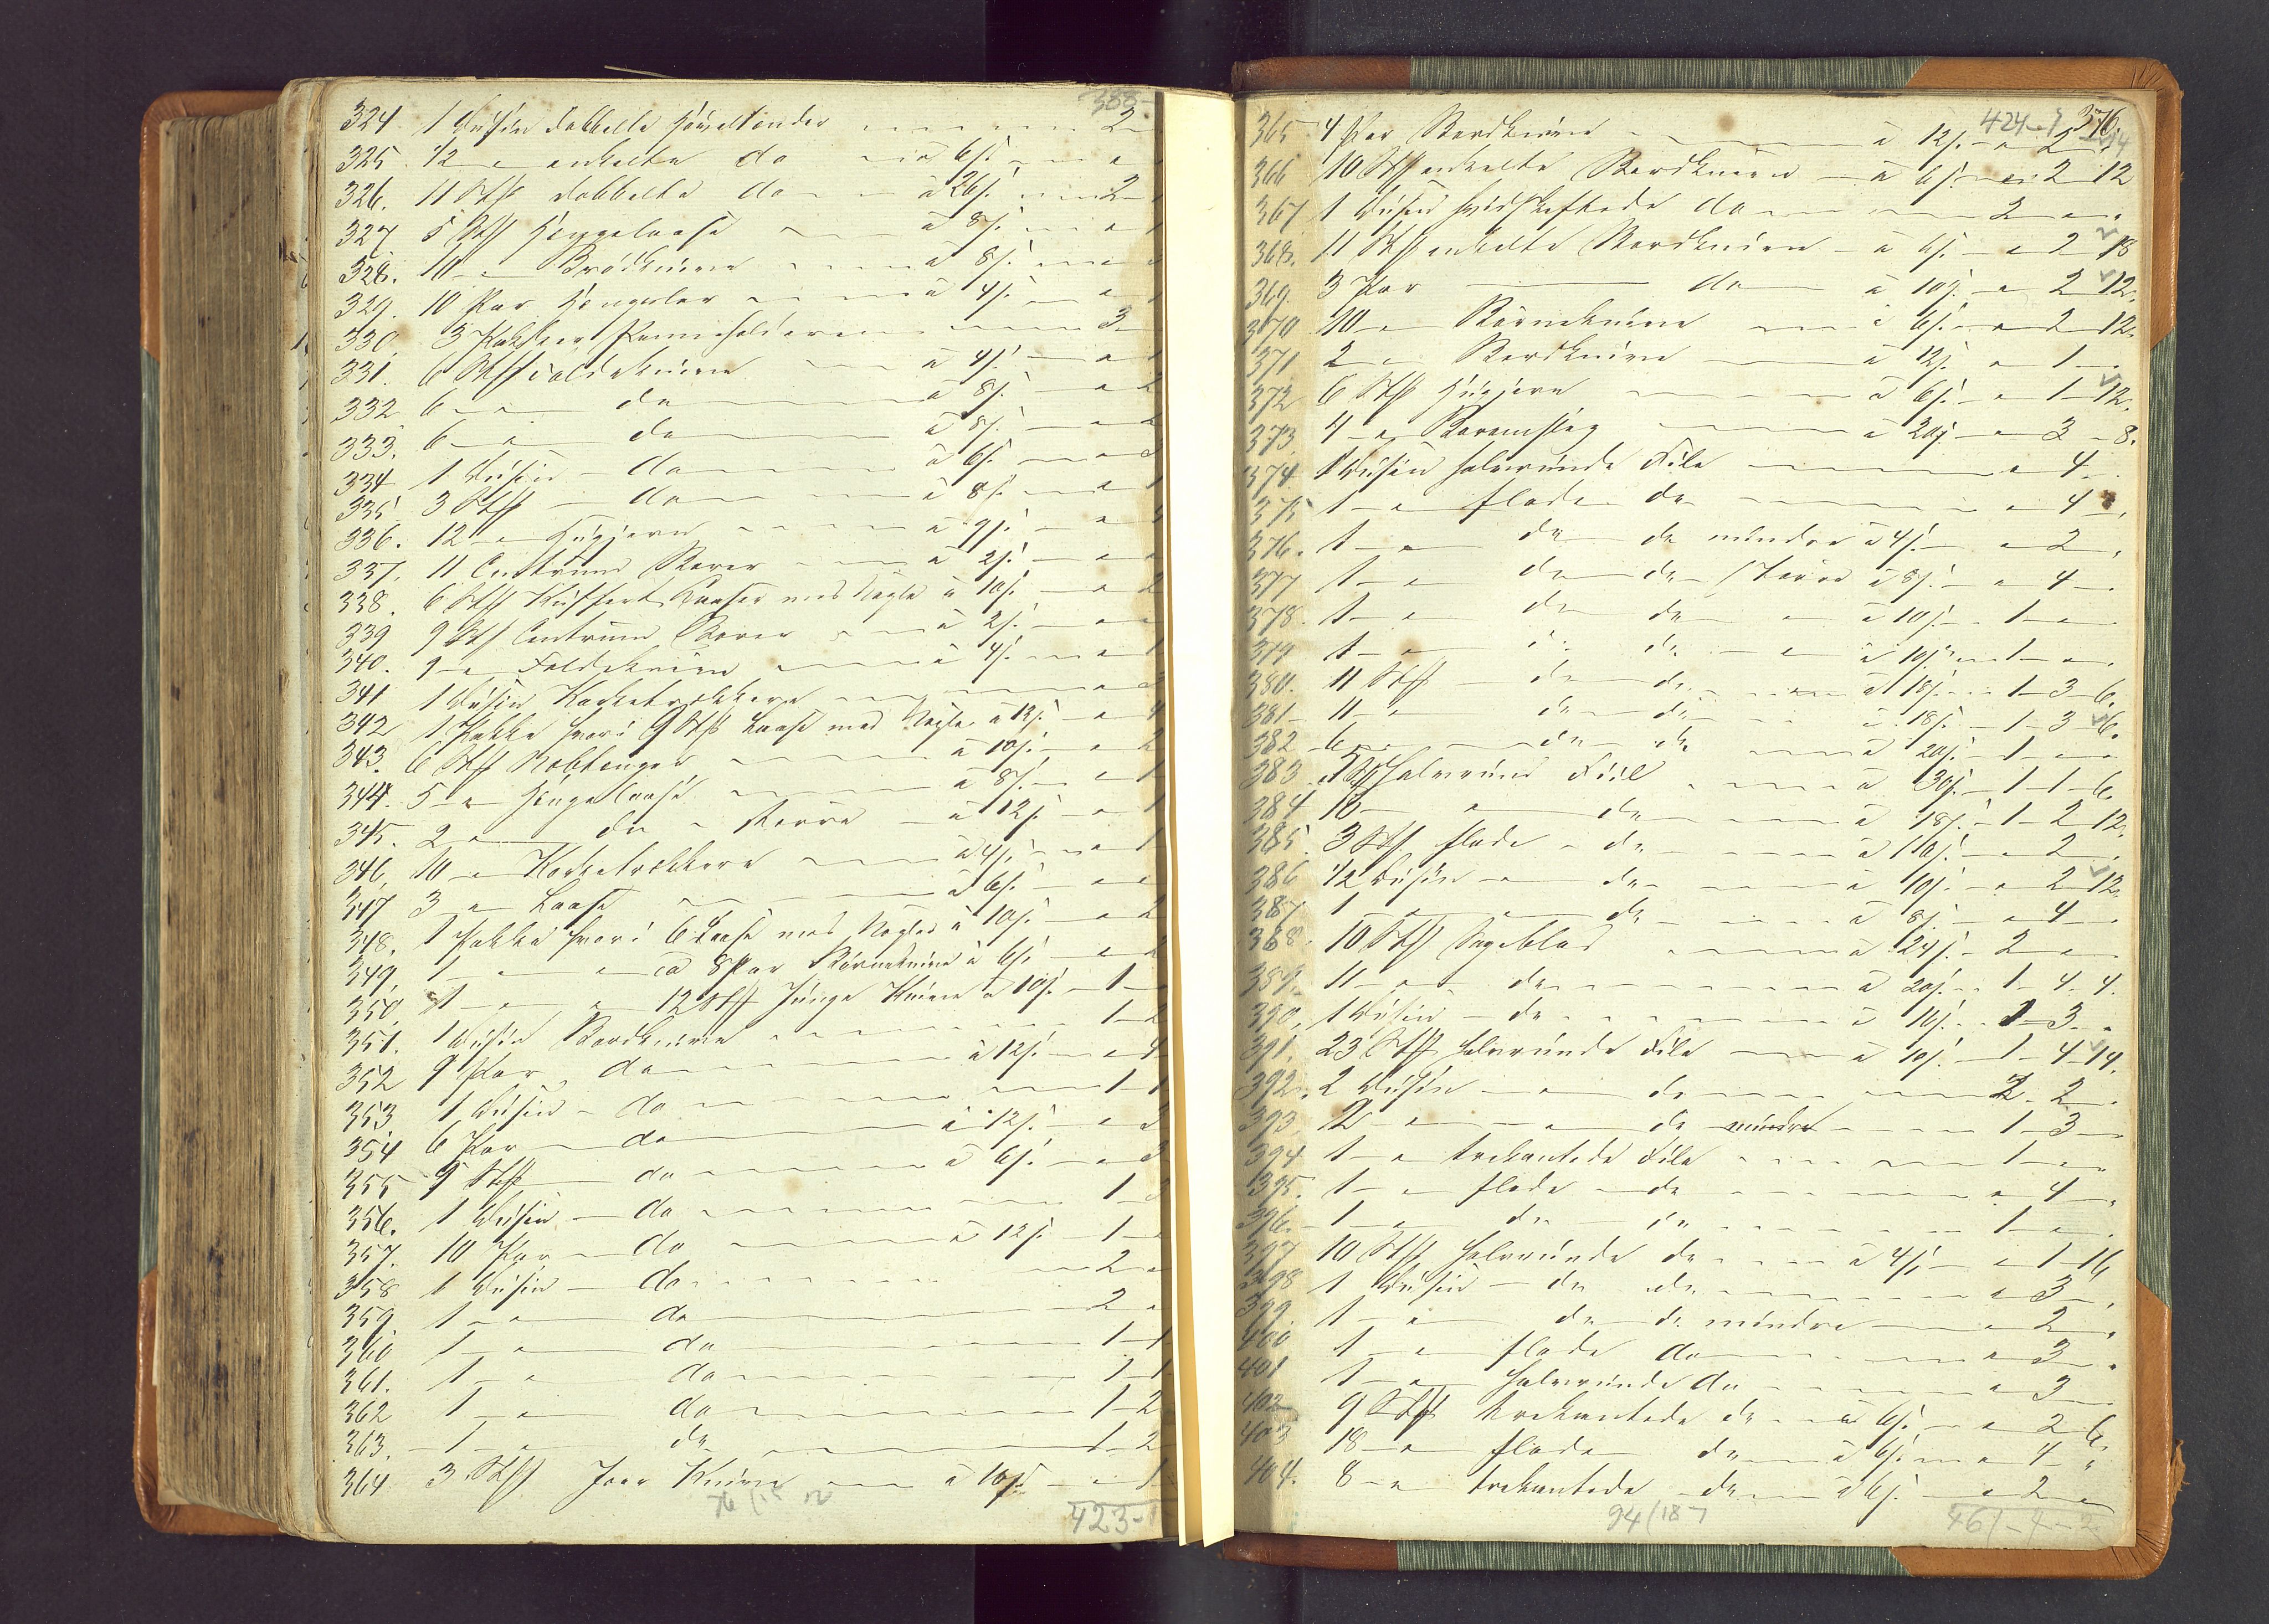 388
324. 1 Dusin dobbelte Høveltender 2
325. 1/2 " enkelte do à 6 s
326. 11 Stk dobbelte do à 26 s 2
327. 5 Stk Hengelaase à 8 s
328. 10 " Brødknive à 8 s
329. 10 Par Hængsler à 4 s
330. 3 Pakker Penneholdere 3
331. 6 Stk Foldeknive à 4 s
332. 6 " do à 8 s 2
333. 6 " do à 8 s 2
334. 1 Dusin do à 6 s
335. 3 Stk do à 8 s 1
336. 12 " Hugjern à 9 s
337. 11 Centrum Borer à 2 s
338. 6 Stk Kuffert Laaser med Nøgle à 10 s 2
339. 9 Stk Centrum Borer à 2 s
340. 9 " Foldeknive à 4 s
341. 1 Dusin Korketrækkere
342. 1 Pakke hvori 9 Stk Laase med Nøgle à 12 s 4
343. 6 Stk Knibtænger à 10 s 2
344. 5 " Hengelaase à 8 s 1
345. 2 " do større à 12 s 1
346. 10 " Korketrækkere à 4 s 1
347. 3 " Laase à 6 s
348. 1 Pakke hvori 6 Laase med Nøgler à 10 s 2
349. 1 " " 8 Par Børneknive à 6 s 2
350. 1 " " 12 Stk Junge Knive à 10 s 1
351. 1 Dusin Bordknive 1 2
352. 9 Par do à 12 s 4
353. 1 Dusin do 1 1
354. 6 Par do à 12 s 3
355. 9 Stk do à 6 s 3
356. 1 Dusin do 1
357. 10 Par do à 12 s 1
358. 1 Dusin do 2
359. 1 " do 2
360. 1 " do 1 1
361. 1 " do 1 1
362. 1 " do 1 2
363. 1 " do 1 2
364. 3 Stk Knive à 10 s 1
423
376.
424
365. 4 Par Bordknive à 12 s " 2 "
366. 10 Stk enkelte Bordknive à 6 s " 2 12
367. 1 Dusin hvidskeftede do 2 " "
368. 11 Stk enkelte Bordknive à 6 s " 2 18
369. 3 Par do à 10 s " 2 12.
370. 10 " Børneknive à 6 s " 2 12.
371. 2 " Bordknive à 12 s " 1 "
372. 6 Stk Hugjern à 6 s " 1 12.
373. 4 " à 20 s " 3 8.
374. 1 Dusin halvrunde File " 4 "
375. 1 " flade do " 4 "
376. 1 " do do mindre à 4 s " 2 "
377. 1 " do do større à 8 s " 4 "
378. 1 " do do à 10 s 1 " "
379. 1 " do do à 10 s 1 " "
380. 11 Stk do do à 18 s 1 3 6.
381. 11 " do do à 18 s 1 3 6.
382. 6 " do do à 20 s 1 " "
383. halvrund Fiil à 30 s 1 1 6.
384. 10 " do à 18 s 1 2 12.
385. 3 Stk flade do à 10 s " 2 "
386. 1/2 Dusin do à 10 s " 2 12.
387. 1 " do à 8 s " 4 "
388. 10 Stk Sageblad à 24 s 2 " "
389. 11 " do à 20 s 1 4 4.
390. 1 Dusin do à 10 s 1 3 "
391. 23 Stk halvrunde File à 10 s 1 4 14.
392. 2 Dusin " do 2 2 "
393. 2 " " do mindre 1 3 "
394. 1 " trekantede File 1 " "
395. 1 " flade do " 4 "
396. 1 " do do 1 " "
397. 10 Stk halvrunde do à 4 s " 1 16
398. 1 Dusin do do " 3 "
399. 1 " do do mindre " 2 "
400. 1 " flade do " 3 "
401. 1 " halvrunde do " 3 "
402. 9 Stk trekantede do à 6 s " 2 6.
403. 18 " flade do à 6 s " 4 "
404. 8 " trekantede do à 6 s " 2 "
94/187
461 - 4 - 2